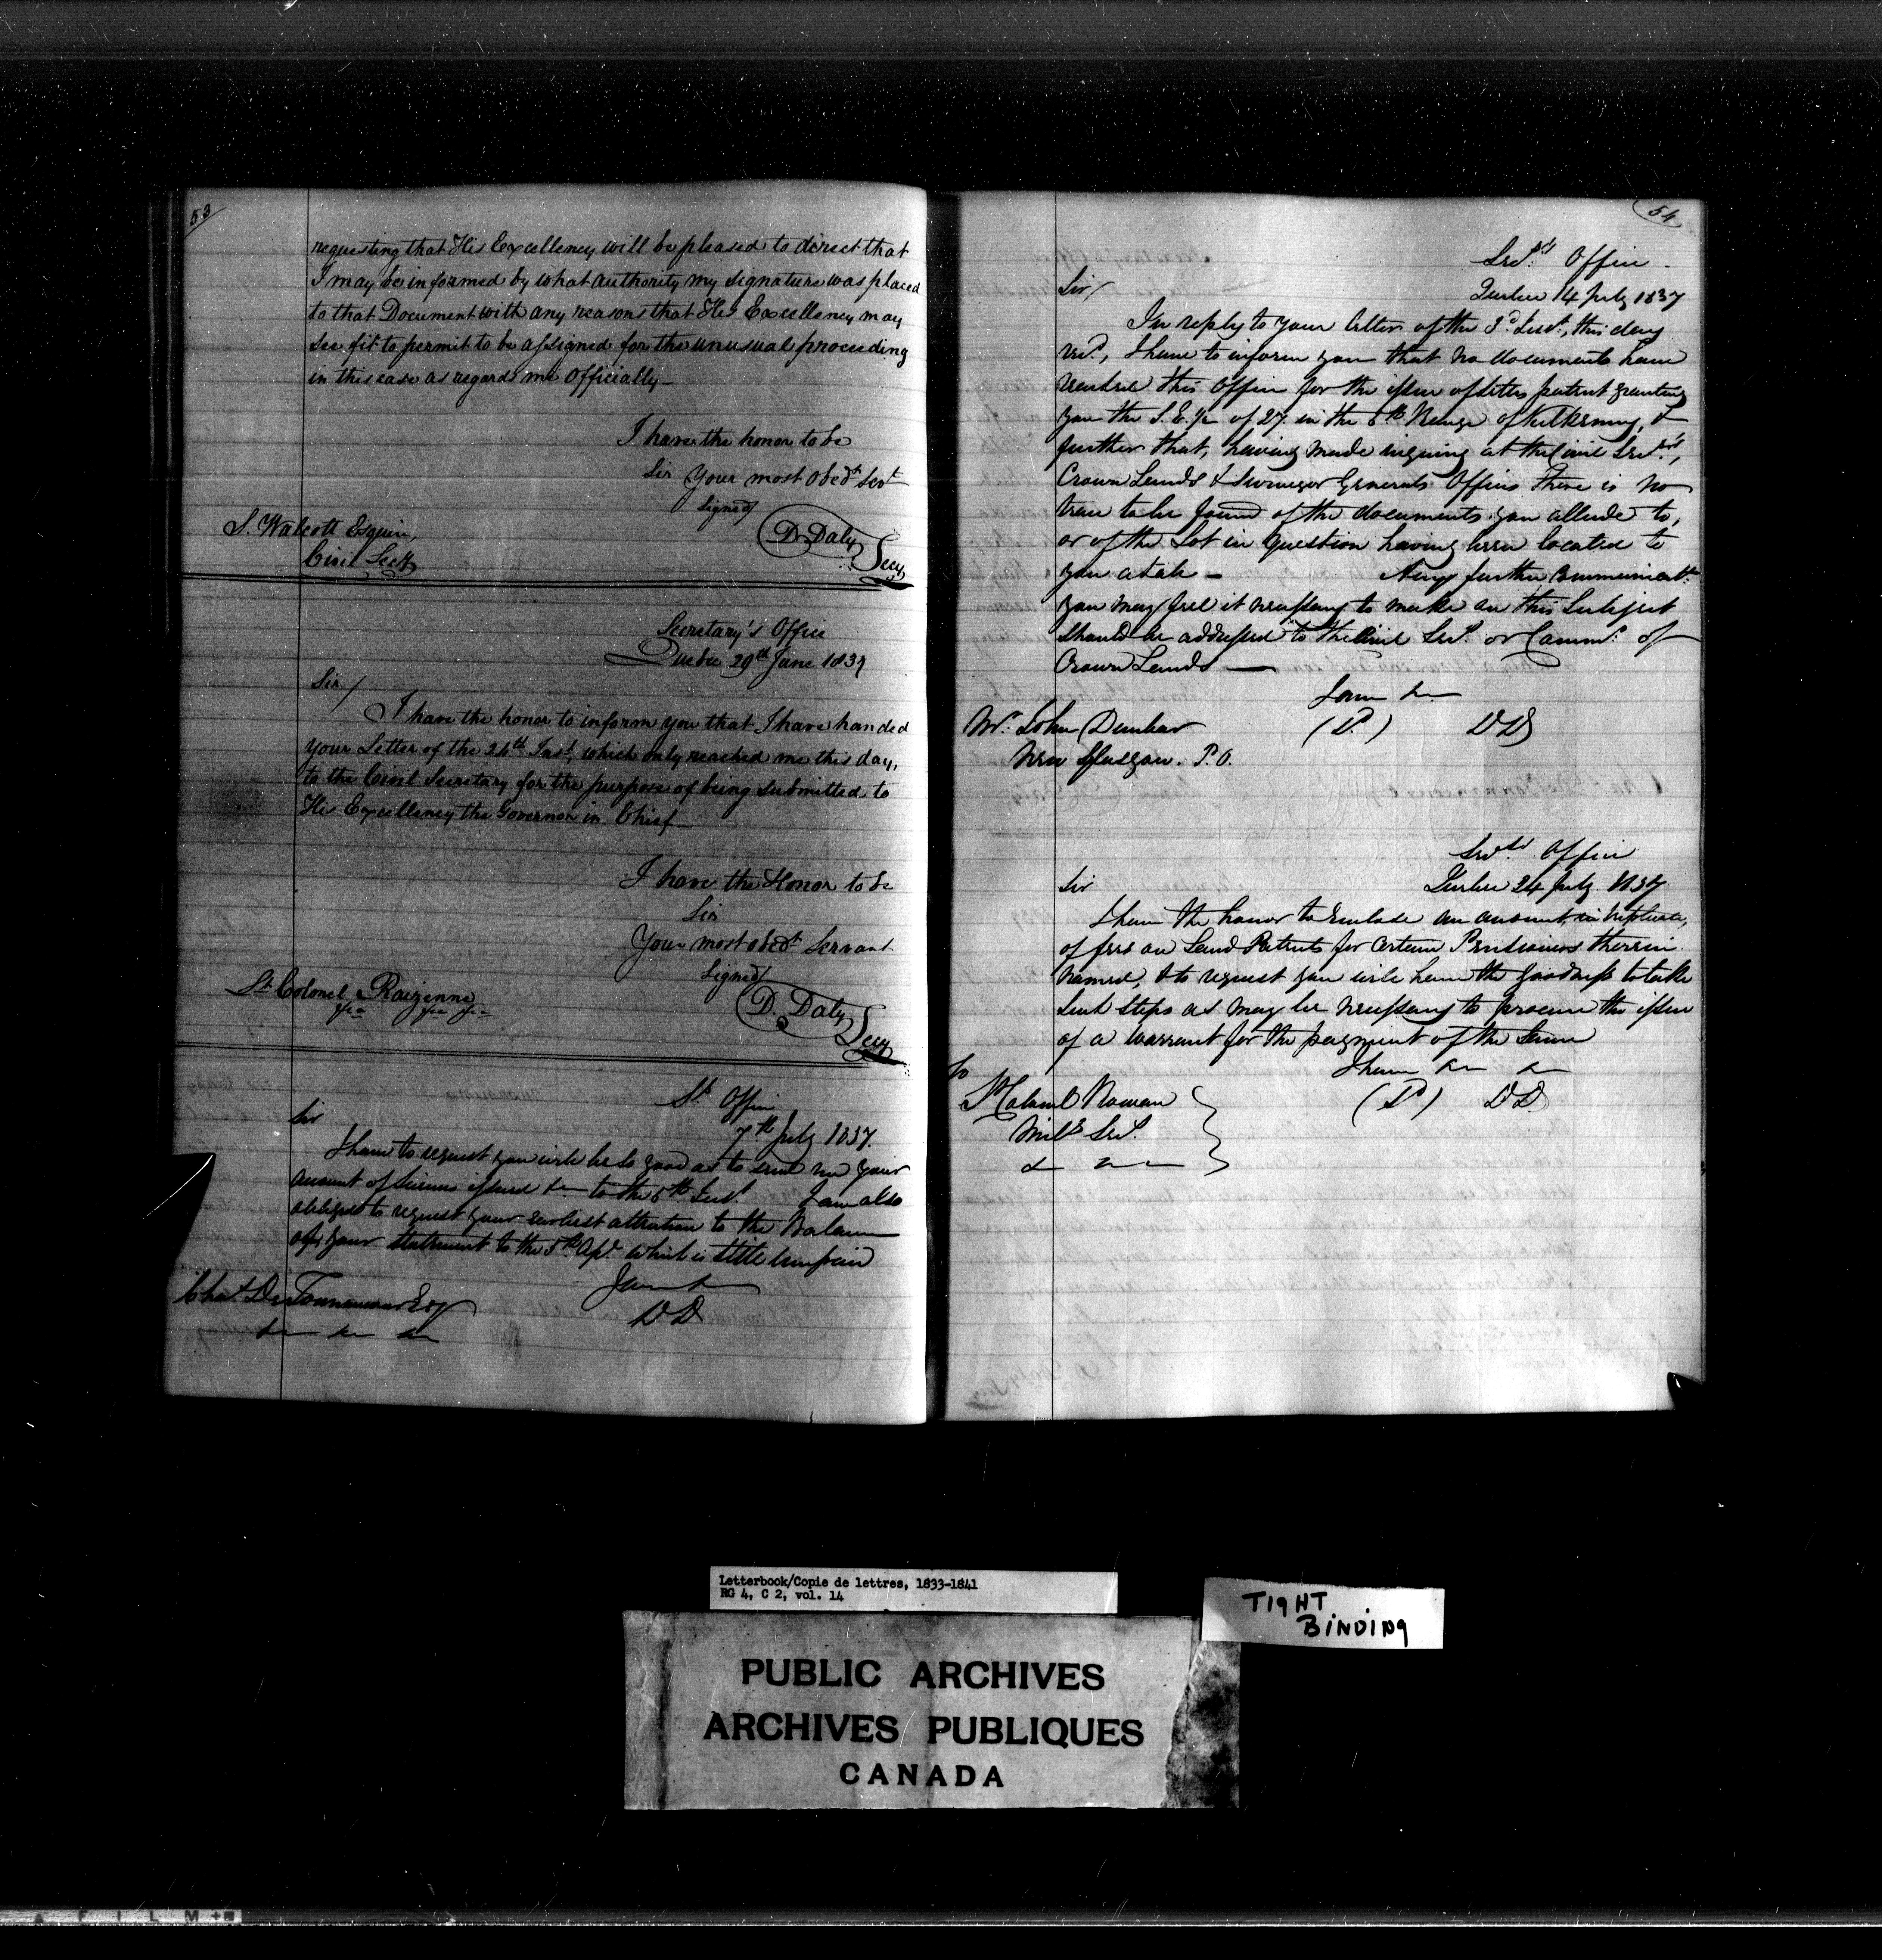 53
requesting that His Excellency will be pleased to direct that
I may be informed by what authority my signature was placed
to that Document with any reasons that His Excellency may
see fit to permit to be assigned for the unusual proceeding
in this case as regards me Officially—
I have the honor to be
Sir Your most Obedt Servt
Signed
D. Daly
Secy
S. Walcott Esquire,
Civil Secy
Secretary's Office
Quebec 29th June 1837
Sir/
I have the honor to inform you that I have handed
your Letter of the 26th Inst, which only reached me this day,
to the Civil Secretary for the purpose of being submitted to
His Excellency the Governor in Chief—
I have the Honor to be
Sir
Your most obedt Servant
Signed
D. Daly
Secy
Lt Colonel Raizenne
&ca &ca &ca
St Office
7th July 1837.
Sir
I have to request you will be so good as to send me your
account of Licenses issued &c to the 5th Inst. I am also
obliged to request your earliest attention to the Balance
of your statement to the 5th Apl which is still unpaid
I am &c
DD
Chas. De Tonnancour Esq
&c &c &c
54
Secy's Office
Quebec 14 July 1837
Sir/
In reply to your letter of the 3d Inst, this day
recd, I have to inform you that no documents have
reached this Office for the issue of letters patent granting
you the S.E. 1/2 of 27 in the 6th Range of Kilkenny, &
further that, having made inquiry at the Civil Secy's,
Crown Lands & Surveyor Generals Offices There is no
trace to be found of the documents you allude to,
or of the Lot in question having been located to
you at all— Any further communicatn
you may feel it necessary to make on this Subject
should be addressed to the Civil Secy or Commr of
Crown Lands —
I am &c
(Sd) DD
Mr. John Dunbar
New Glasgow. P.O.
Secy's Office
Quebec 24 July 1837
Sir
I have the honor to enclose an account, in triplicate,
of fees on Land Patents for certain Pensioners therein
named, & to request you will have the goodness to take
such steps as may be necessary to procure the issue
of a warrant for the payment of the same
I have &c &c
(Sd) DD
To
Lt Colonel Rowan
Mily Secy.
& &c &c
Letterbook/Copie de lettres, 1833-1841
RG 4, C 2, vol. 14
TIGHT
BINDING
PUBLIC ARCHIVES
ARCHIVES PUBLIQUES
CANADA